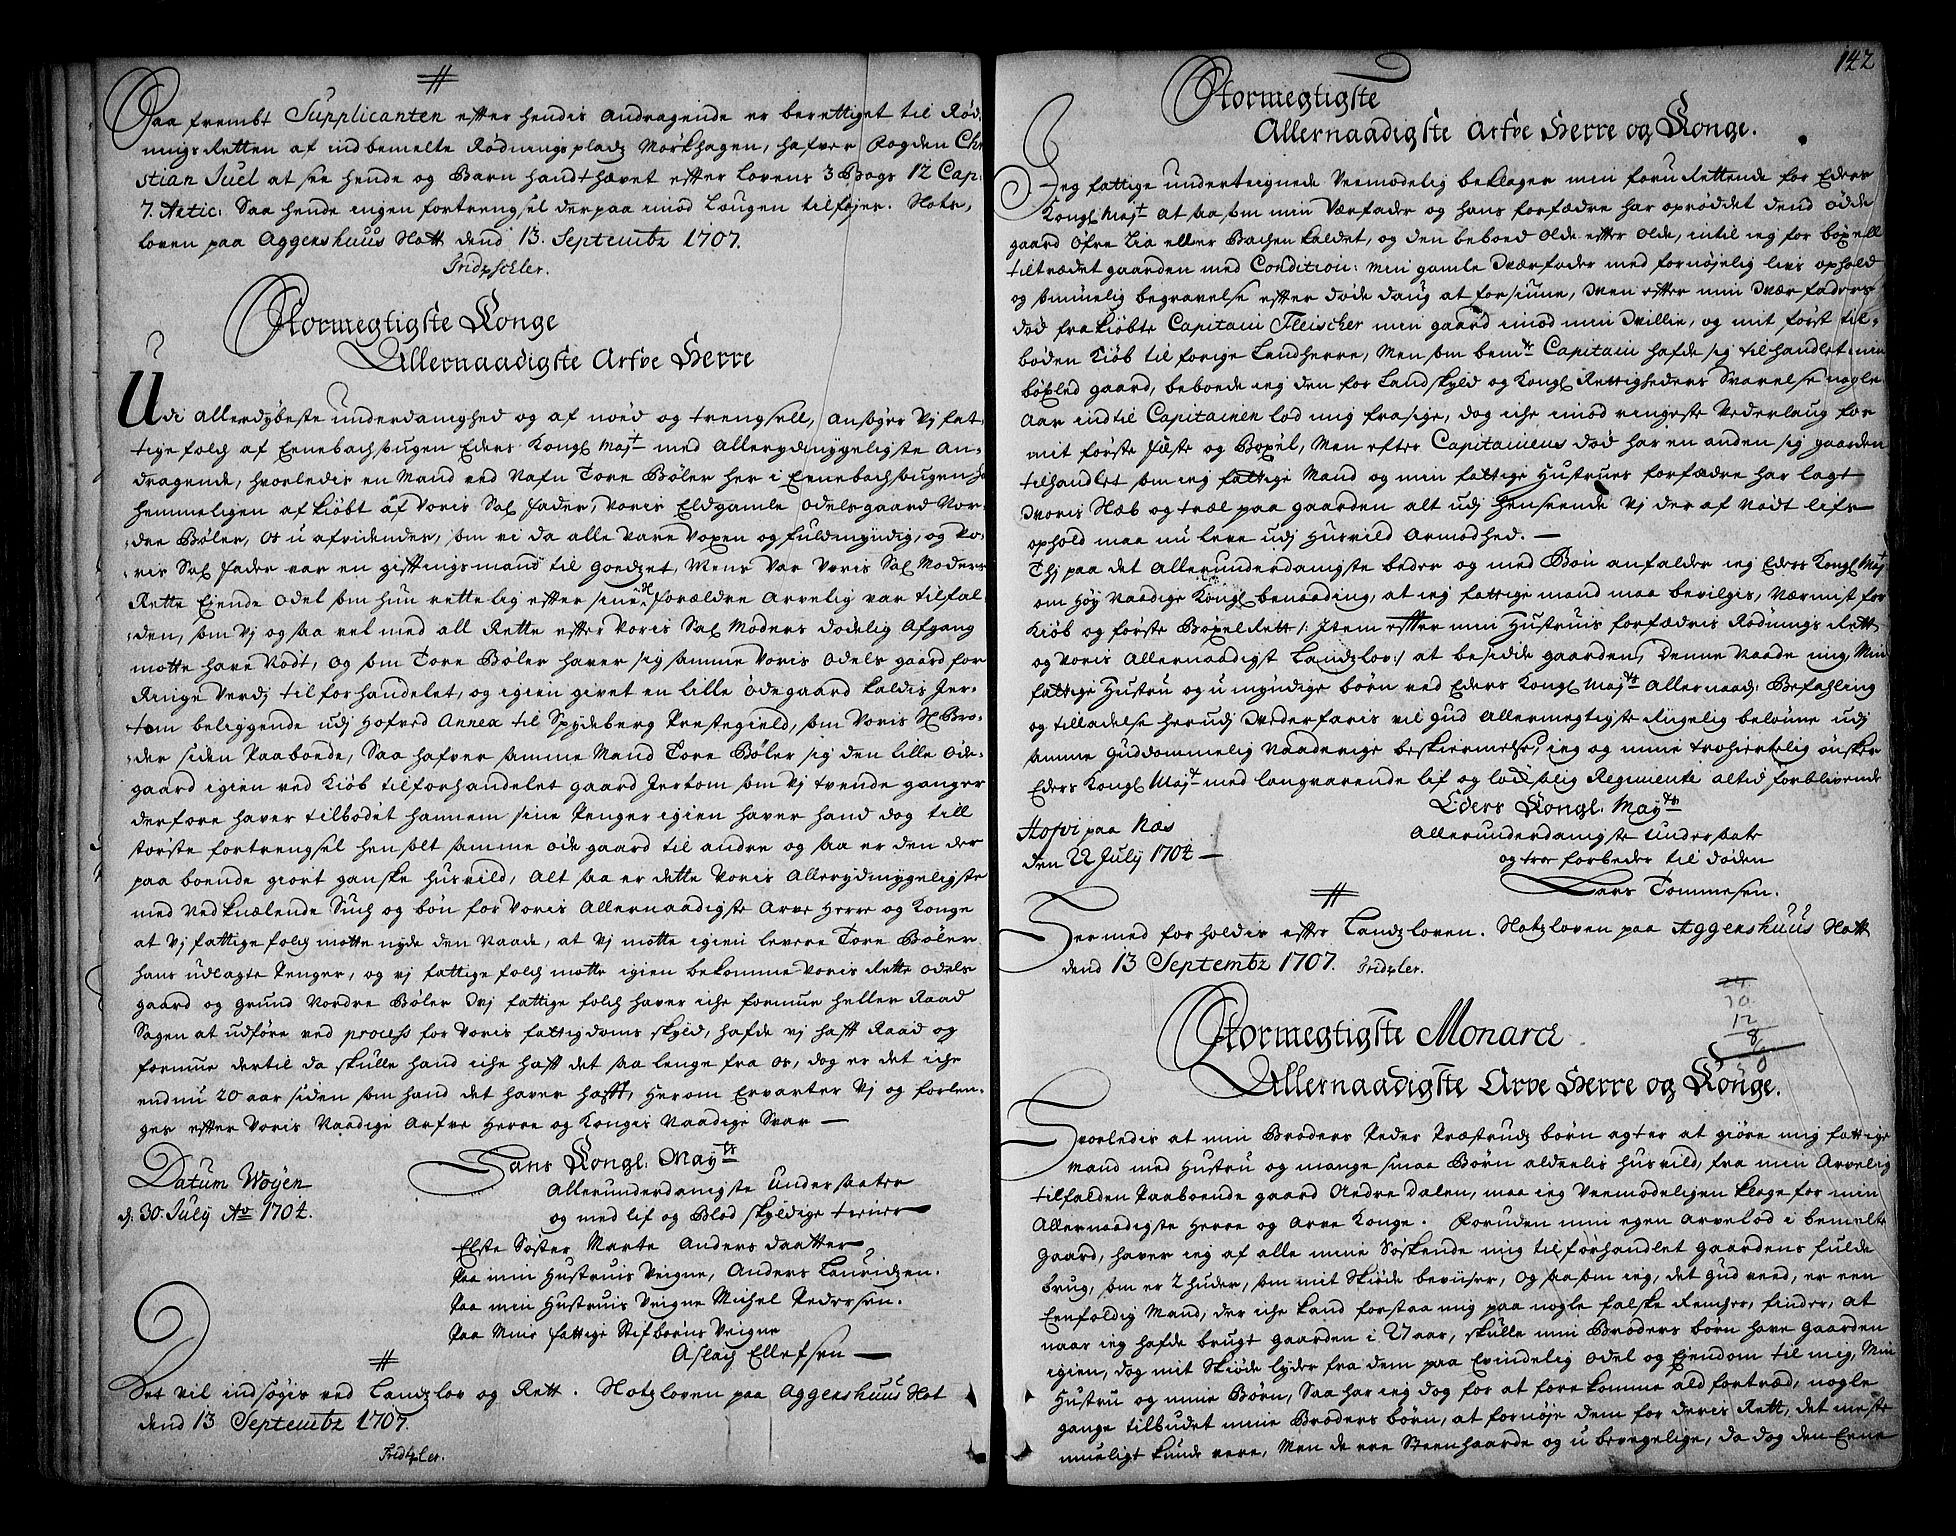 #
Saa frembt Supplicanten effter hendis andragende er berettiget til Rød-
nings Retten af indbemelte Rødningsplads Mørkhagen, hafver Fogden Chri
stian Juel at see hende og Barn handthævet effter Lovens 3 Bogs 12 Cap:
7. Artic: Saa hende ingen fortrengsel derpaa imod Lougen tilføjes. Slots-
loven paa Aggershuus Slott dend 13. Septembr 1707.
Stormegtigste Konge
Allernaadigste Arfve Herre
Udi allerdybeste underdanighed og af nød og trengsell, ansøger Vj fat-
tige folch af Ennebachsougen Eders Kongl Majt med allerydmygeligste An-
dragende, hvorledis en Mand ved Nafn Tore Bøler her i Ennebachsougen ha
hemmeligen afkiøbt af Voris Sal fader, Voris Eldgamle Odelsgaard Nor-
dre Bøler, Os u afvidendes, som vi da alle vare voxen og fuldmyndig, og Vo-
ris Sal fader var en gifftingsmand til Goedzet, Mens var Voris Sal Moders
Rette Eyende Odel som hun rettelig effter sine forældre Arvelig var tilfal-
den, som Vj og saa vel med all Rette effter Voris Sal Moders dødelig Afgang
motte have Nødt, og som Tore Bøler haver sig samme Voris Odels gaard for
Ringe Verdj tilforhandelet, og igien givet en lille ødegaard kaldis Jer-
tom beliggende udj Hofved Annex til Spydeberg Prestegield, som Voris Sl Bro-
der siden Paaboede, Saa hafver samme Mand Tore Bøler sig den lille Øde-
gaard igien ved Kiøb tilforhandelet gaard Jertom som Vj tvende ganger
derfore haver tilbødet hannem sine Penger igien haver hand dog till
største fortrengsel hensolt samme øde gaard til andre og saa er den der
paa boende giort ganske husvild, Alt saa er dette Voris Allerydmygeligste
med Nedknælende Such og bøn for Voris Allernaadigste Arve Herre og Konge
at Vj fattige folch motte nyde den Naade, at Vj motte igien levere Tore Bøler
hans udlagte Penger, og vj fattige folch motte igien bekomme Voris Rette Odels
gaard og grund Nordre Bøler vj fattige folch haver iche formue heller Raad
Sagen at udføre ved process for Voris fattigdoms skyld, hafde vj hafft Raad og
formue dertil da skulle hand iche hafft det saa lenge fra os, dog er det iche
endnu 20 aar siden som hand det haver hafft, Herom Ervarter Vj og forlen-
ger effter Voris Naadige Arfve Herre og Kongis Naadige Svar —
Datum Wøyen
d: 30. July Ao 1704.
Hans Kongl. Mayts
Allerunderdanigste Undersaatter
og med lif og Blod skyldige tienere
Elste Søster Marte Anders daatter
Paa min Hustruis Veigne, Anders Lauridzen.
Paa min Hustruis Veigne Michel Pedersen.
Paa Mine fattige Stifbørns Veigne
Aslach Ellefsen —
#
Det vil indsøgis ved Landzlov og Rett. Slotzloven paa Aggershuus Slot
dend 13 Septembr 1707.
142
Stormegtigste
Allernaadigste Arfve Herre og Konge.
Jeg fattige underteignede Veemodelig beklager min foruRettende for Eders
Kongl Majt at saa som min Værfader og hans forfædre har oprøddet dend øde
gaard Øfre Lia eller Bachen kaldet, og den beboed Olde effter Olde, intil ieg for bøxell
tiltrædet gaarden med Condition: min gamle Værfader med fornøjelig livs ophold
og sømmelig begravelse effter døde dang at forsiune, Men effter min Værfaders
død frakiøbte Capitain Fleischer min gaard imod min Villie, og mit først til-
bøden Kiøb til forige Landherre, Men som bemte Capitain hafde sig tilhandlet min
bøxled gaard, beboede ieg den for Landskyld og Kongl Rettigheders Svarelse nogle
Aar indtil Capitainen lod mig frasige, dog iche imod ringeste Vederlaug for
mit første fæste og Bøxel, Men efter Capitainens død har en anden sig gaarden
tilhandlet som ieg fattige Mand og min fattige Hustrues forfædre har lagt
Voris Slæb og træl paa gaarden alt udj Henseende Vj der af Nødt lifs-
ophold maa nu leve udj Husvild Armodhed. —
Thj paa det Allerunderdanigste beder og med Bøn anfalder ieg Eders Kongl Majt
om Høy Naadige Kongl benaading, at ieg fattige mand maa bevilgis, Nærmist for
Kiøb og første Bøxel Rett /: Item effter min Hustruis forfædris Rødnings Rett
og Voris Allernaadigst Landzlov:/ at besidde gaarden, denne Naade mig, Min
fattige Hustru og u myndige børn ved Eders Kongl Majts Allernaad: Befahling
og tilladelse herudj Vederfaris vil Gud Allermegtigste Rigelig belønne udj
samme Guddommelig Naaderige beskiermelse, ieg og mine trohiertelig ønsker
Eders Kongl Majt med langvarende lif og løcksalig Regimente altid forblivende
Eders Kongl. Mayts
Hofvi paa Næs
den 22 July 1704 —
Allerunderdanigste Undersaate
og troe forbeder til døden
Lars Tommesen.
#
Hermed forholdis effter Landzloven. Slotzloven paa Aggershuus Slott
dend 13 Septembr 1707.
24.
30.
12
8
Stormegtigste Monarch
Allernaadigste Arve Herre og Konge.
Hvorledis at min Broders Peder Præstruds børn agter at giøre mig fattige
Mand med Hustru og mange smaa Børn aldeelis husvild, fra min Arvelig
tilfalden Paaboende gaard Nedre Dalen, maa ieg Veemodeligen klage for min
Allernaadigste Herre og Arve Konge. Foruden min egen Arvelod i bemelte
Gaard, haver ieg af alle mine Søskende mig tilforhandlet Gaardens fulde
brug, som er 2 huder, som mit Skiøde beviiser, Og saasom ieg, det Gud veed, er een
Eenfoldig Mand, der iche kand forstaa mig paa nogle falske Rencher, finder, at
naar ieg hafde brugt gaarden i 27 aar, skulle min Broders børn have Gaarden
igien, dog mit Skiøde lyder fra dem paa Evindelig Odel og Eyendom til mig, Min
Hustru og mine Børn, Saa har ieg dog for at forekomme ald fortræd, nogle
gange tilbudet mine Broders børn, at fornøje dem for deris Rett, det meste
mueligt kunde vere, Men de ere Steenhaarde og u bevegelige, da dog den Eene